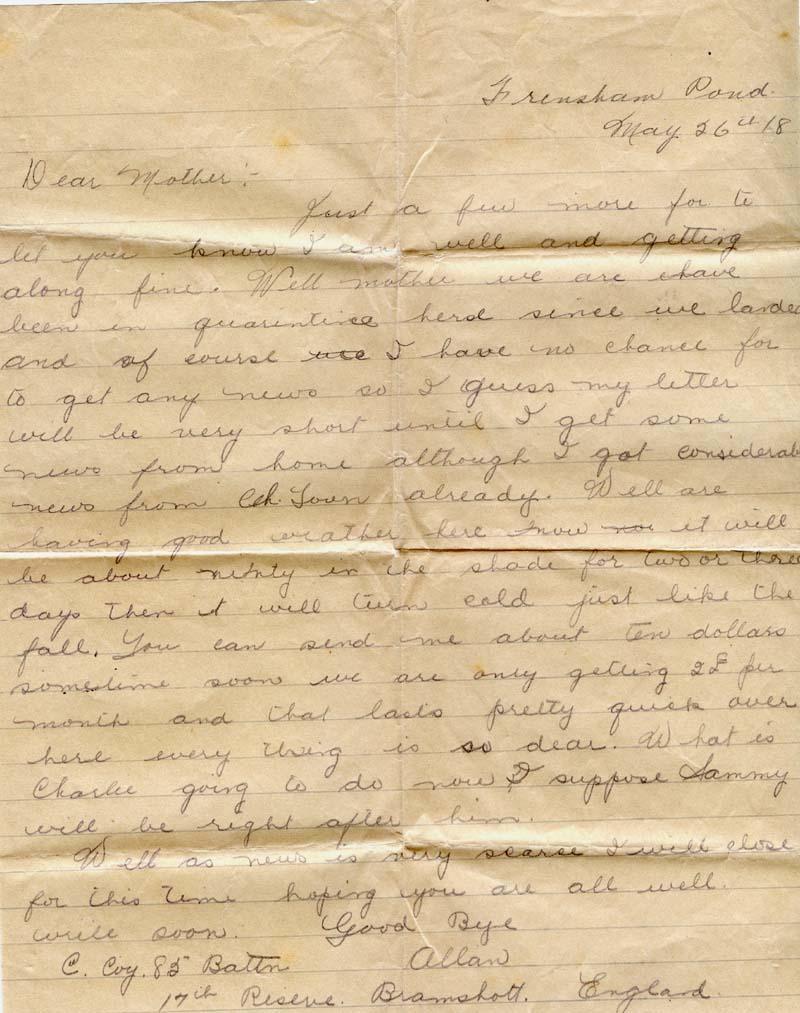 Frensham Pond.
May 26th 18
Dear Mother:-
Just a few more for to
let you know I am well and getting
along fine. Well mother we are
been in quarintine herd since we landed
and of course I have no chance for
to get any news so I guess my letter
will be very short until I get some
news from home although I got considerabl
news from Ch. Town already. Well are
having good weather here now it will
be about ninty in the shade for two or three
days then it will turn cold just like the
fall. You can send me about ten dollars
sometime soon we are only getting 2£ per
month and that lasts pretty quick over
here every thing is so dear. What is
Charlie going to do now I suppose Sammy
will be right after him.
Well as news is very scarse I will close
for this time hoping you are all well.
write soon. Good Bye
C. Coy. 85 Battn Allan
17th Riserve. Bramshott. England.